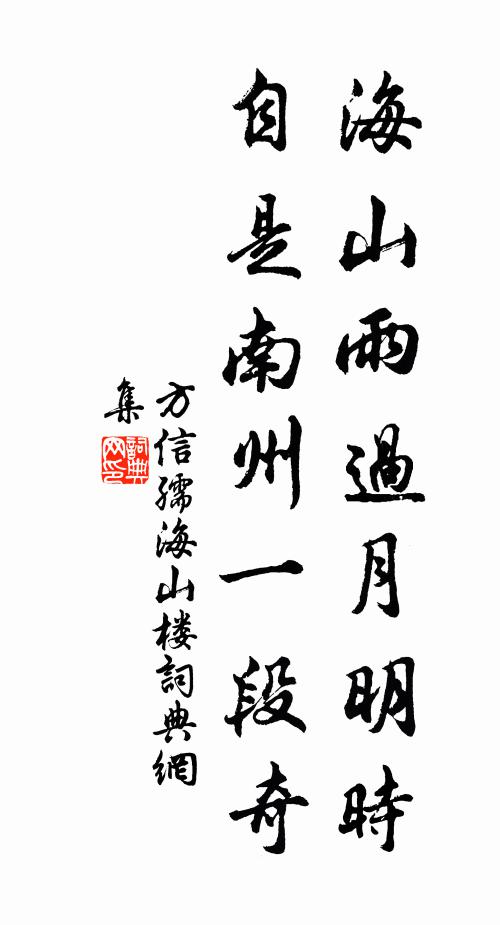 海山雨過月明時
自是南州一段奇
方信孺海山楼詞典網
集
詞典
网印